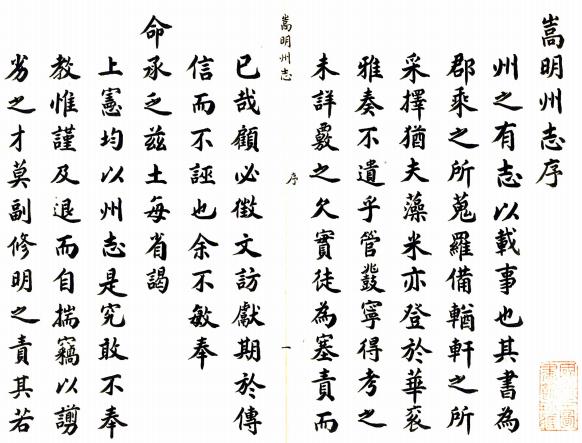 嵩明州志序
州之有志以載事也其書為
郡乘之所蒐羅備輶軒之所
采擇猶夫藻米亦登於華袞
雅奏不遺乎管鼗寧得考之
未詳覈之久實徒為塞責而
嵩明州志
序
一
已哉顧必徵文訪獻期於傳
信而不誣也余不敏奉
命承乏茲土每省謁
上憲均以州志是究敢不奉
教惟謹及退而自揣竊以謭
劣之才莫副修明之責其若